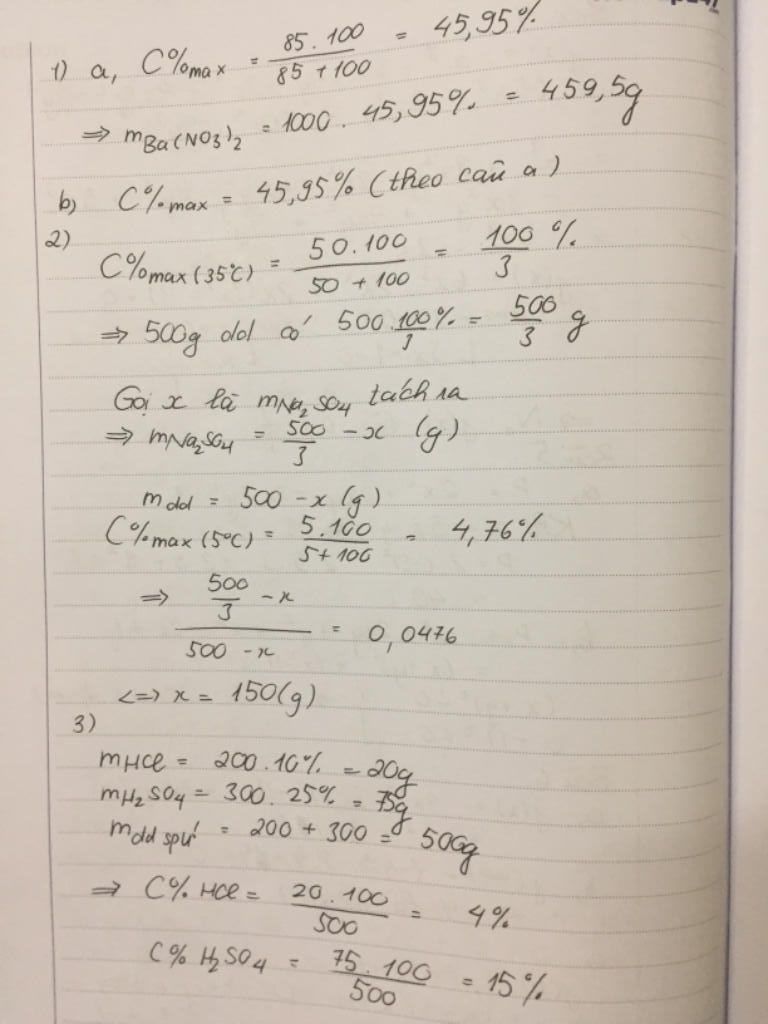 1) a, C%max = 85.100 / 85+100 = 45,95%
=> mBa(NO3)2 = 1000. 45,95% = 459,5g
b) C%max = 45,95% (theo câu a)
2)
C%max (35°C) = 50.100 / 50 + 100 = 100/3 %
=> 500g dd có 500.100/3 % = 500/3 g
Gọi x là mNa2SO4 tách ra
=> mNa2SO4 = 500/3 - x (g)
mdd = 500 - x (g)
C%max (5°C) = 5.100 / 5+100 = 4,76%
=> 500/3 - x / 500 - x = 0,0476
<=> x = 150(g)
3)
mHCl = 200.10% = 20g
mH2SO4 = 300.25% = 75g
mdd spứ = 200 + 300 = 500g
=> C% HCl = 20.100 / 500 = 4%
C% H2SO4 = 75.100 / 500 = 15%